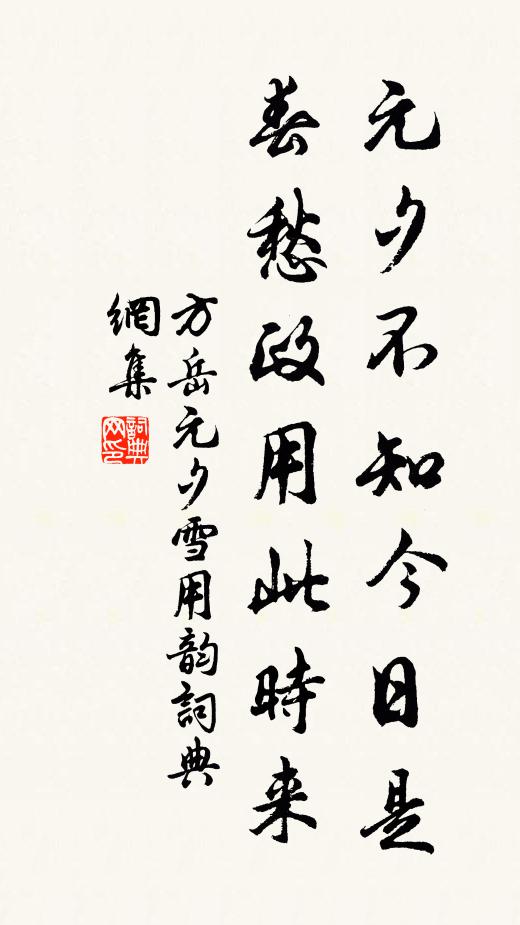 元夕不知今日是
春愁政用此時来
方岳元夕雪用韵詞典
網集
詞典
网印